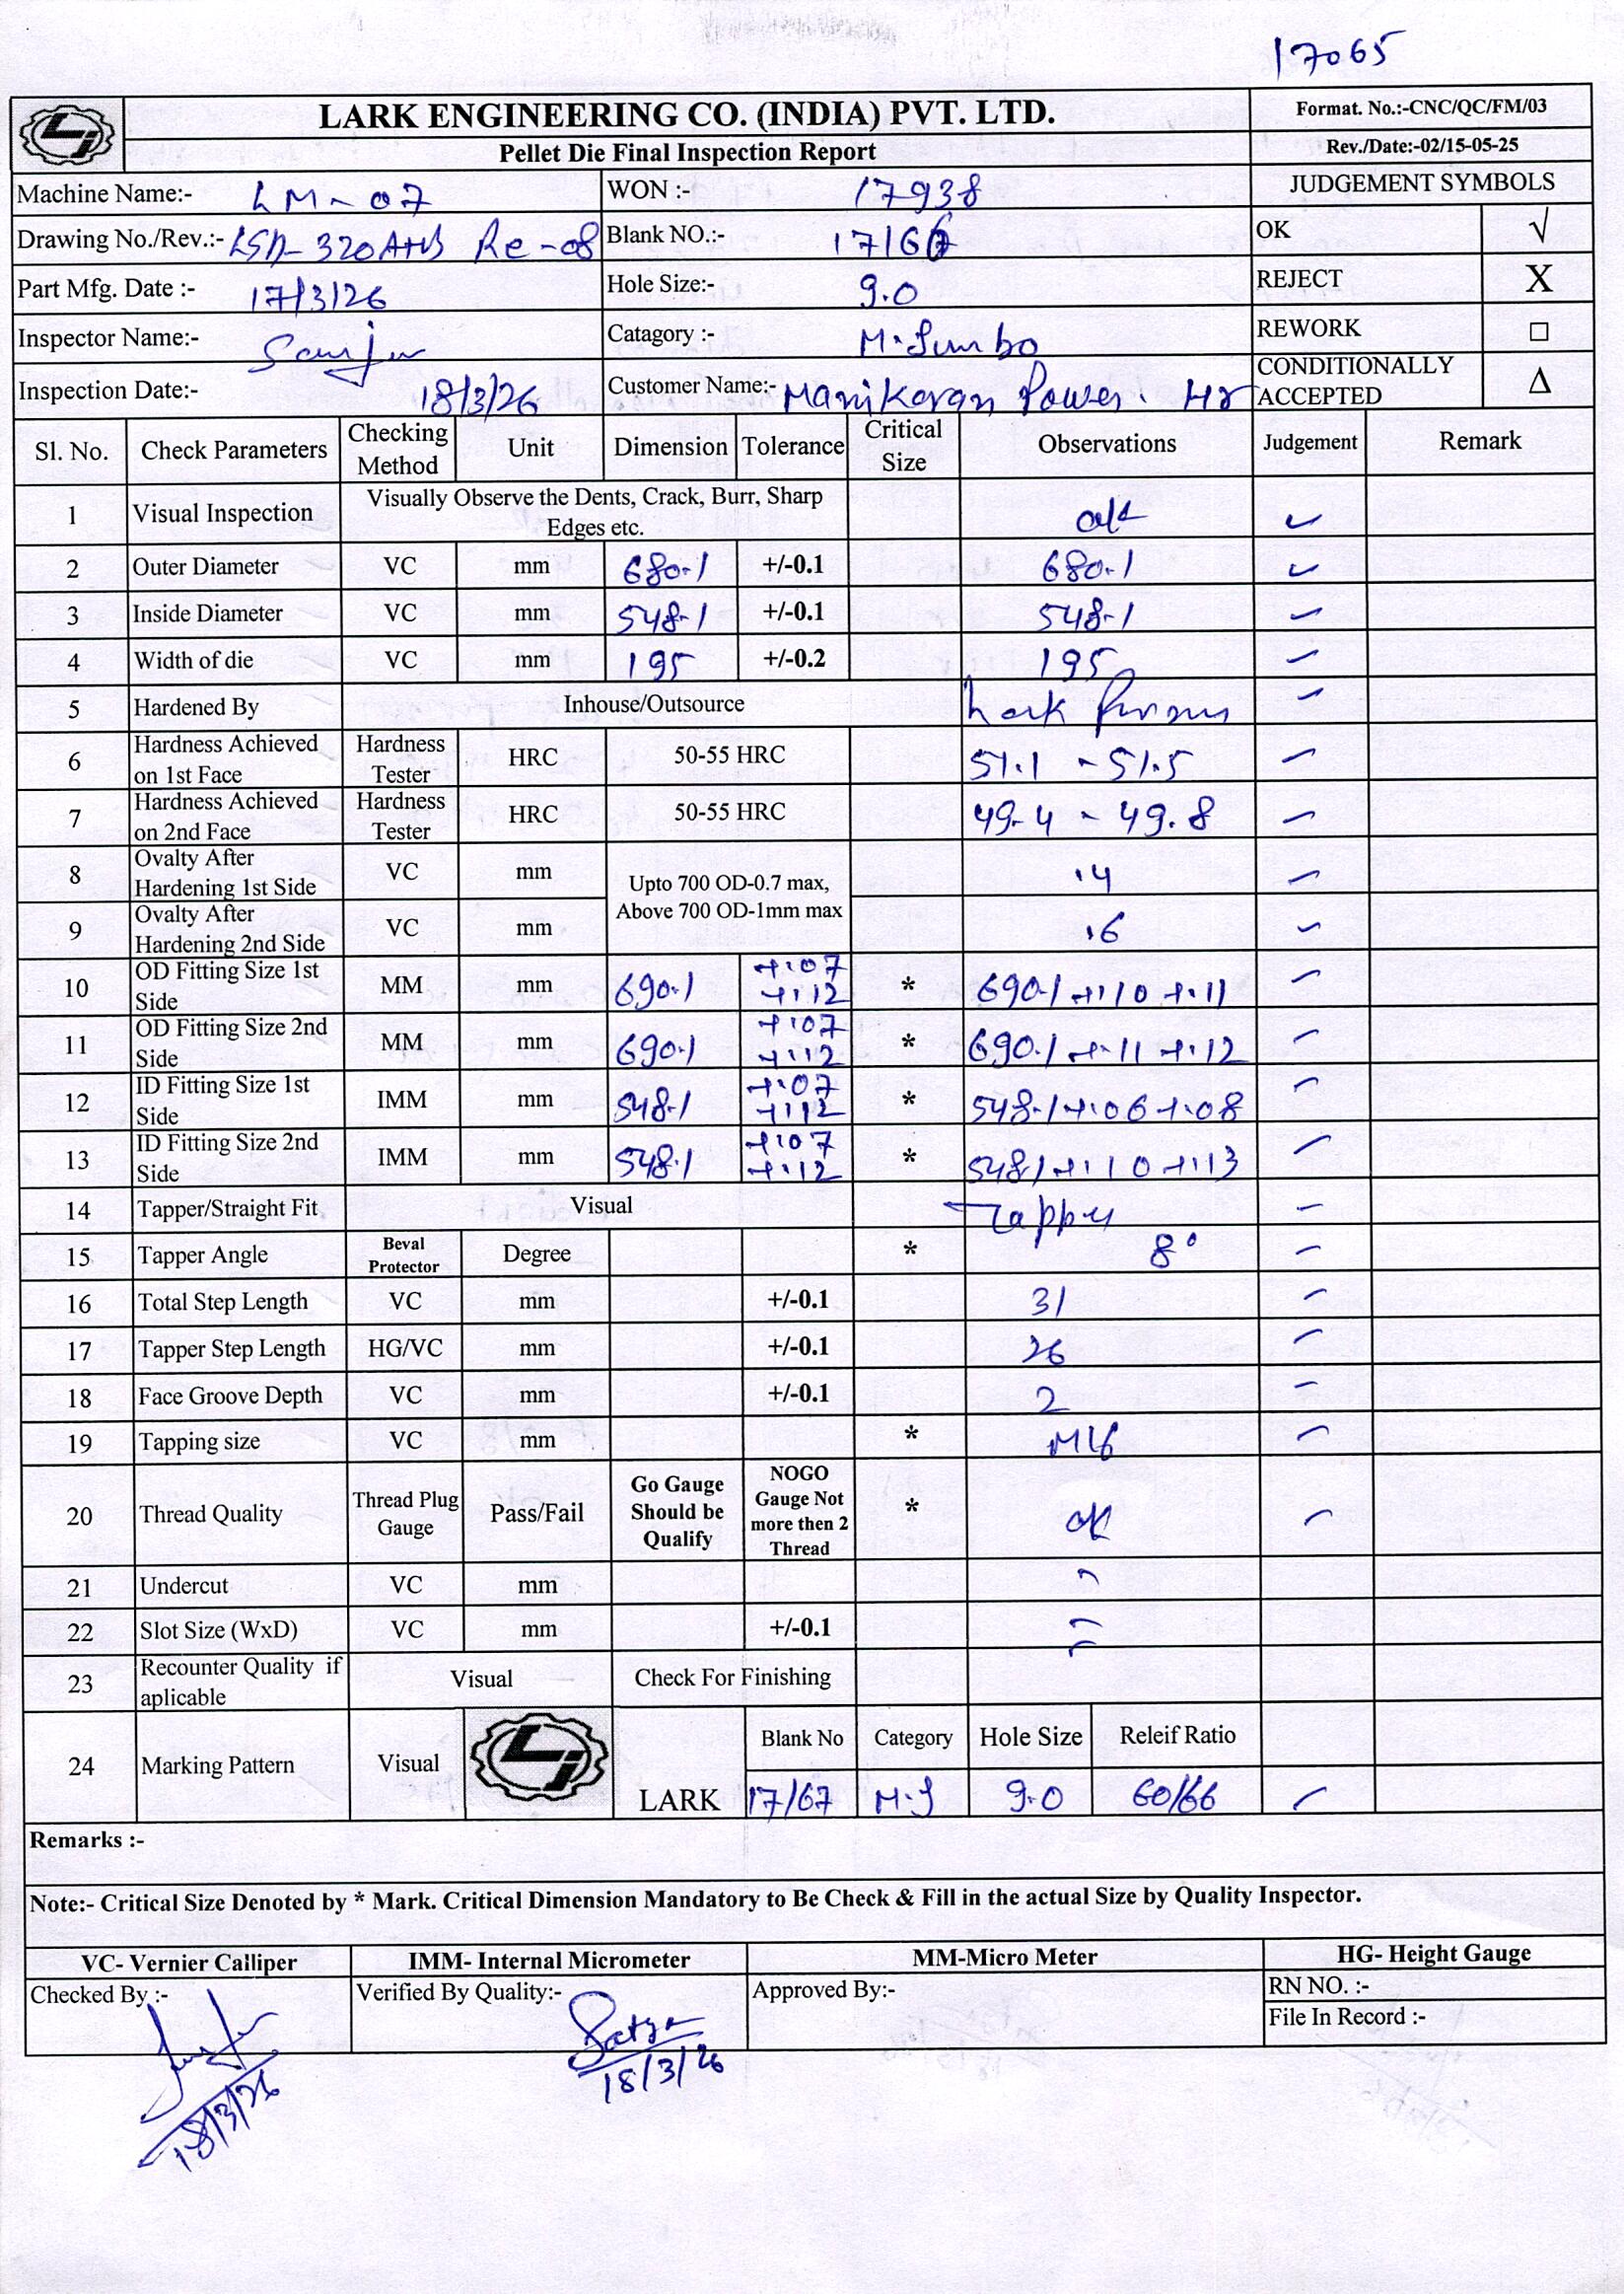 17065
LARK ENGINEERING CO. (INDIA) PVT. LTD.
Format. No.:-CNC/QC/FM/03
Pellet Die Final Inspection Report
Rev./Date:-02/15-05-25
Machine Name:- LM-07 WON :- 17938 JUDGEMENT SYMBOLS
Drawing No./Rev.:- 320A Re-08 Blank NO.:- OK √
Part Mfg. Date :- 17/3/26 Hole Size:- 9.0 REJECT X
Inspector Name:- Catagory :- M.Jumbo REWORK □
Inspection Date:- 18/3/26 Customer Name:- Manikaran Power. Hr CONDITIONALLY ACCEPTED Δ
Sl. No. Check Parameters Checking Method Unit Dimension Tolerance Critical Size Observations Judgement Remark
1 Visual Inspection Visually Observe the Dents, Crack, Burr, Sharp Edges etc. ok ✓
2 Outer Diameter VC mm 680.1 +/-0.1 680.1 ✓
3 Inside Diameter VC mm 548.1 +/-0.1 548.1 ✓
4 Width of die VC mm 195 +/-0.2 195 ✓
5 Hardened By Inhouse/Outsource Lark ✓
6 Hardness Achieved on 1st Face Hardness Tester HRC 50-55 HRC 51.1 - 51.5 ✓
7 Hardness Achieved on 2nd Face Hardness Tester HRC 50-55 HRC 49.4 - 49.8 ✓
8 Ovalty After Hardening 1st Side VC mm Upto 700 OD-0.7 max, Above 700 OD-1mm max .4 ✓
9 Ovalty After Hardening 2nd Side VC mm .6 ✓
10 OD Fitting Size 1st Side MM mm 690.1 +.07 +.12 * 690.1 +.10 +.11 ✓
11 OD Fitting Size 2nd Side MM mm 690.1 +.07 +.12 * 690.1 +.11 +.12 ✓
12 ID Fitting Size 1st Side IMM mm 548.1 +.07 +.12 * 548.1 +.06 +.08 ✓
13 ID Fitting Size 2nd Side IMM mm 548.1 +.07 +.12 * 548.1 +.10 +.13 ✓
14 Tapper/Straight Fit Visual Tapper ✓
15 Tapper Angle Beval Protector Degree * 8° ✓
16 Total Step Length VC mm +/-0.1 31 ✓
17 Tapper Step Length HG/VC mm +/-0.1 26 ✓
18 Face Groove Depth VC mm +/-0.1 2 ✓
19 Tapping size VC mm * M16 ✓
20 Thread Quality Thread Plug Gauge Pass/Fail Go Gauge Should be Qualify NOGO Gauge Not more then 2 Thread * ok ✓
21 Undercut VC mm -
22 Slot Size (WxD) VC mm +/-0.1 -
23 Recounter Quality if aplicable Visual Check For Finishing -
24 Marking Pattern Visual LARK Blank No Category Hole Size Releif Ratio
17167 M.J 9.0 60/66 ✓
Remarks :-
Note:- Critical Size Denoted by * Mark. Critical Dimension Mandatory to Be Check & Fill in the actual Size by Quality Inspector.
VC- Vernier Calliper IMM- Internal Micrometer MM-Micro Meter HG- Height Gauge
Checked By :- Verified By Quality:- Satya Approved By:- RN NO. :-
File In Record :-
18/3/26 18/3/26